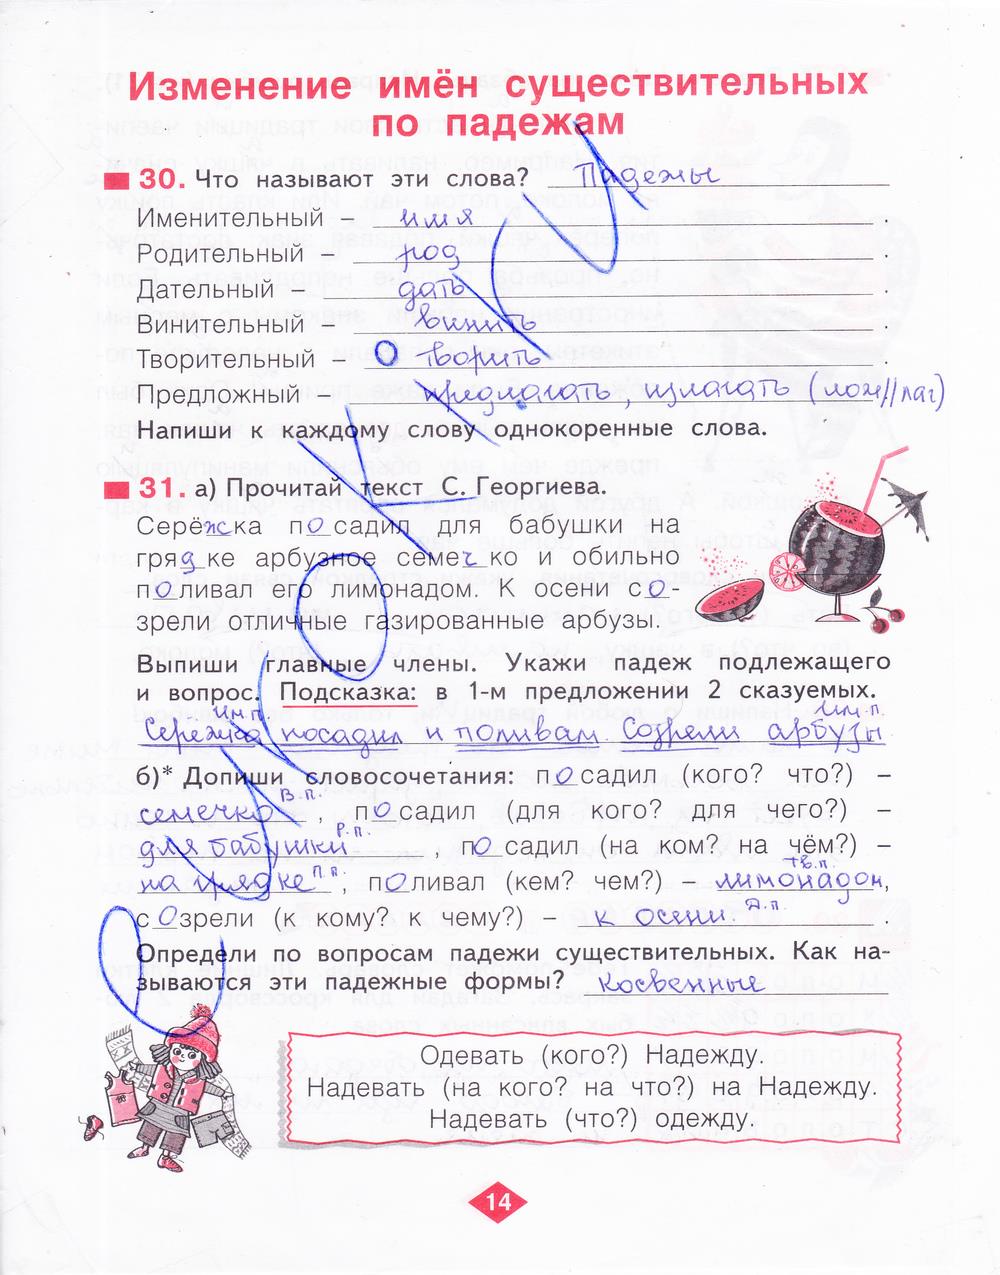 Изменение имён существительных
по падежам
30. Что называют эти слова? Падежы
Именительный – имя .
Родительный – род .
Дательный – дать .
Винительный – винить .
Творительный – творить .
Предложный – предлагать, излагать (лож//лаг)
Напиши к каждому слову однокоренные слова.
31. а) Прочитай текст С. Георгиева.
Серёжка посадил для бабушки на
грядке арбузное семечко и обильно
поливал его лимонадом. К осени со-
зрели отличные газированные арбузы.
Выпиши главные члены. Укажи падеж подлежащего
и вопрос. Подсказка: в 1-м предложении 2 сказуемых.
Им.п. Им.п.
Сережка посадил и поливал. Созрели арбузы.
б)* Допиши словосочетания: посадил (кого? что?) –
семечко В.п., посадил (для кого? для чего?) –
для бабушки Р.п., посадил (на ком? на чём?) –
на грядке П.п., поливал (кем? чем?) – лимонадом Тв.п.,
созрели (к кому? к чему?) – к осени. Д.п. .
Определи по вопросам падежи существительных. Как на-
зываются эти падежные формы? косвенные
Одевать (кого?) Надежду.
Надевать (на кого? на что?) на Надежду.
Надевать (что?) одежду.
14